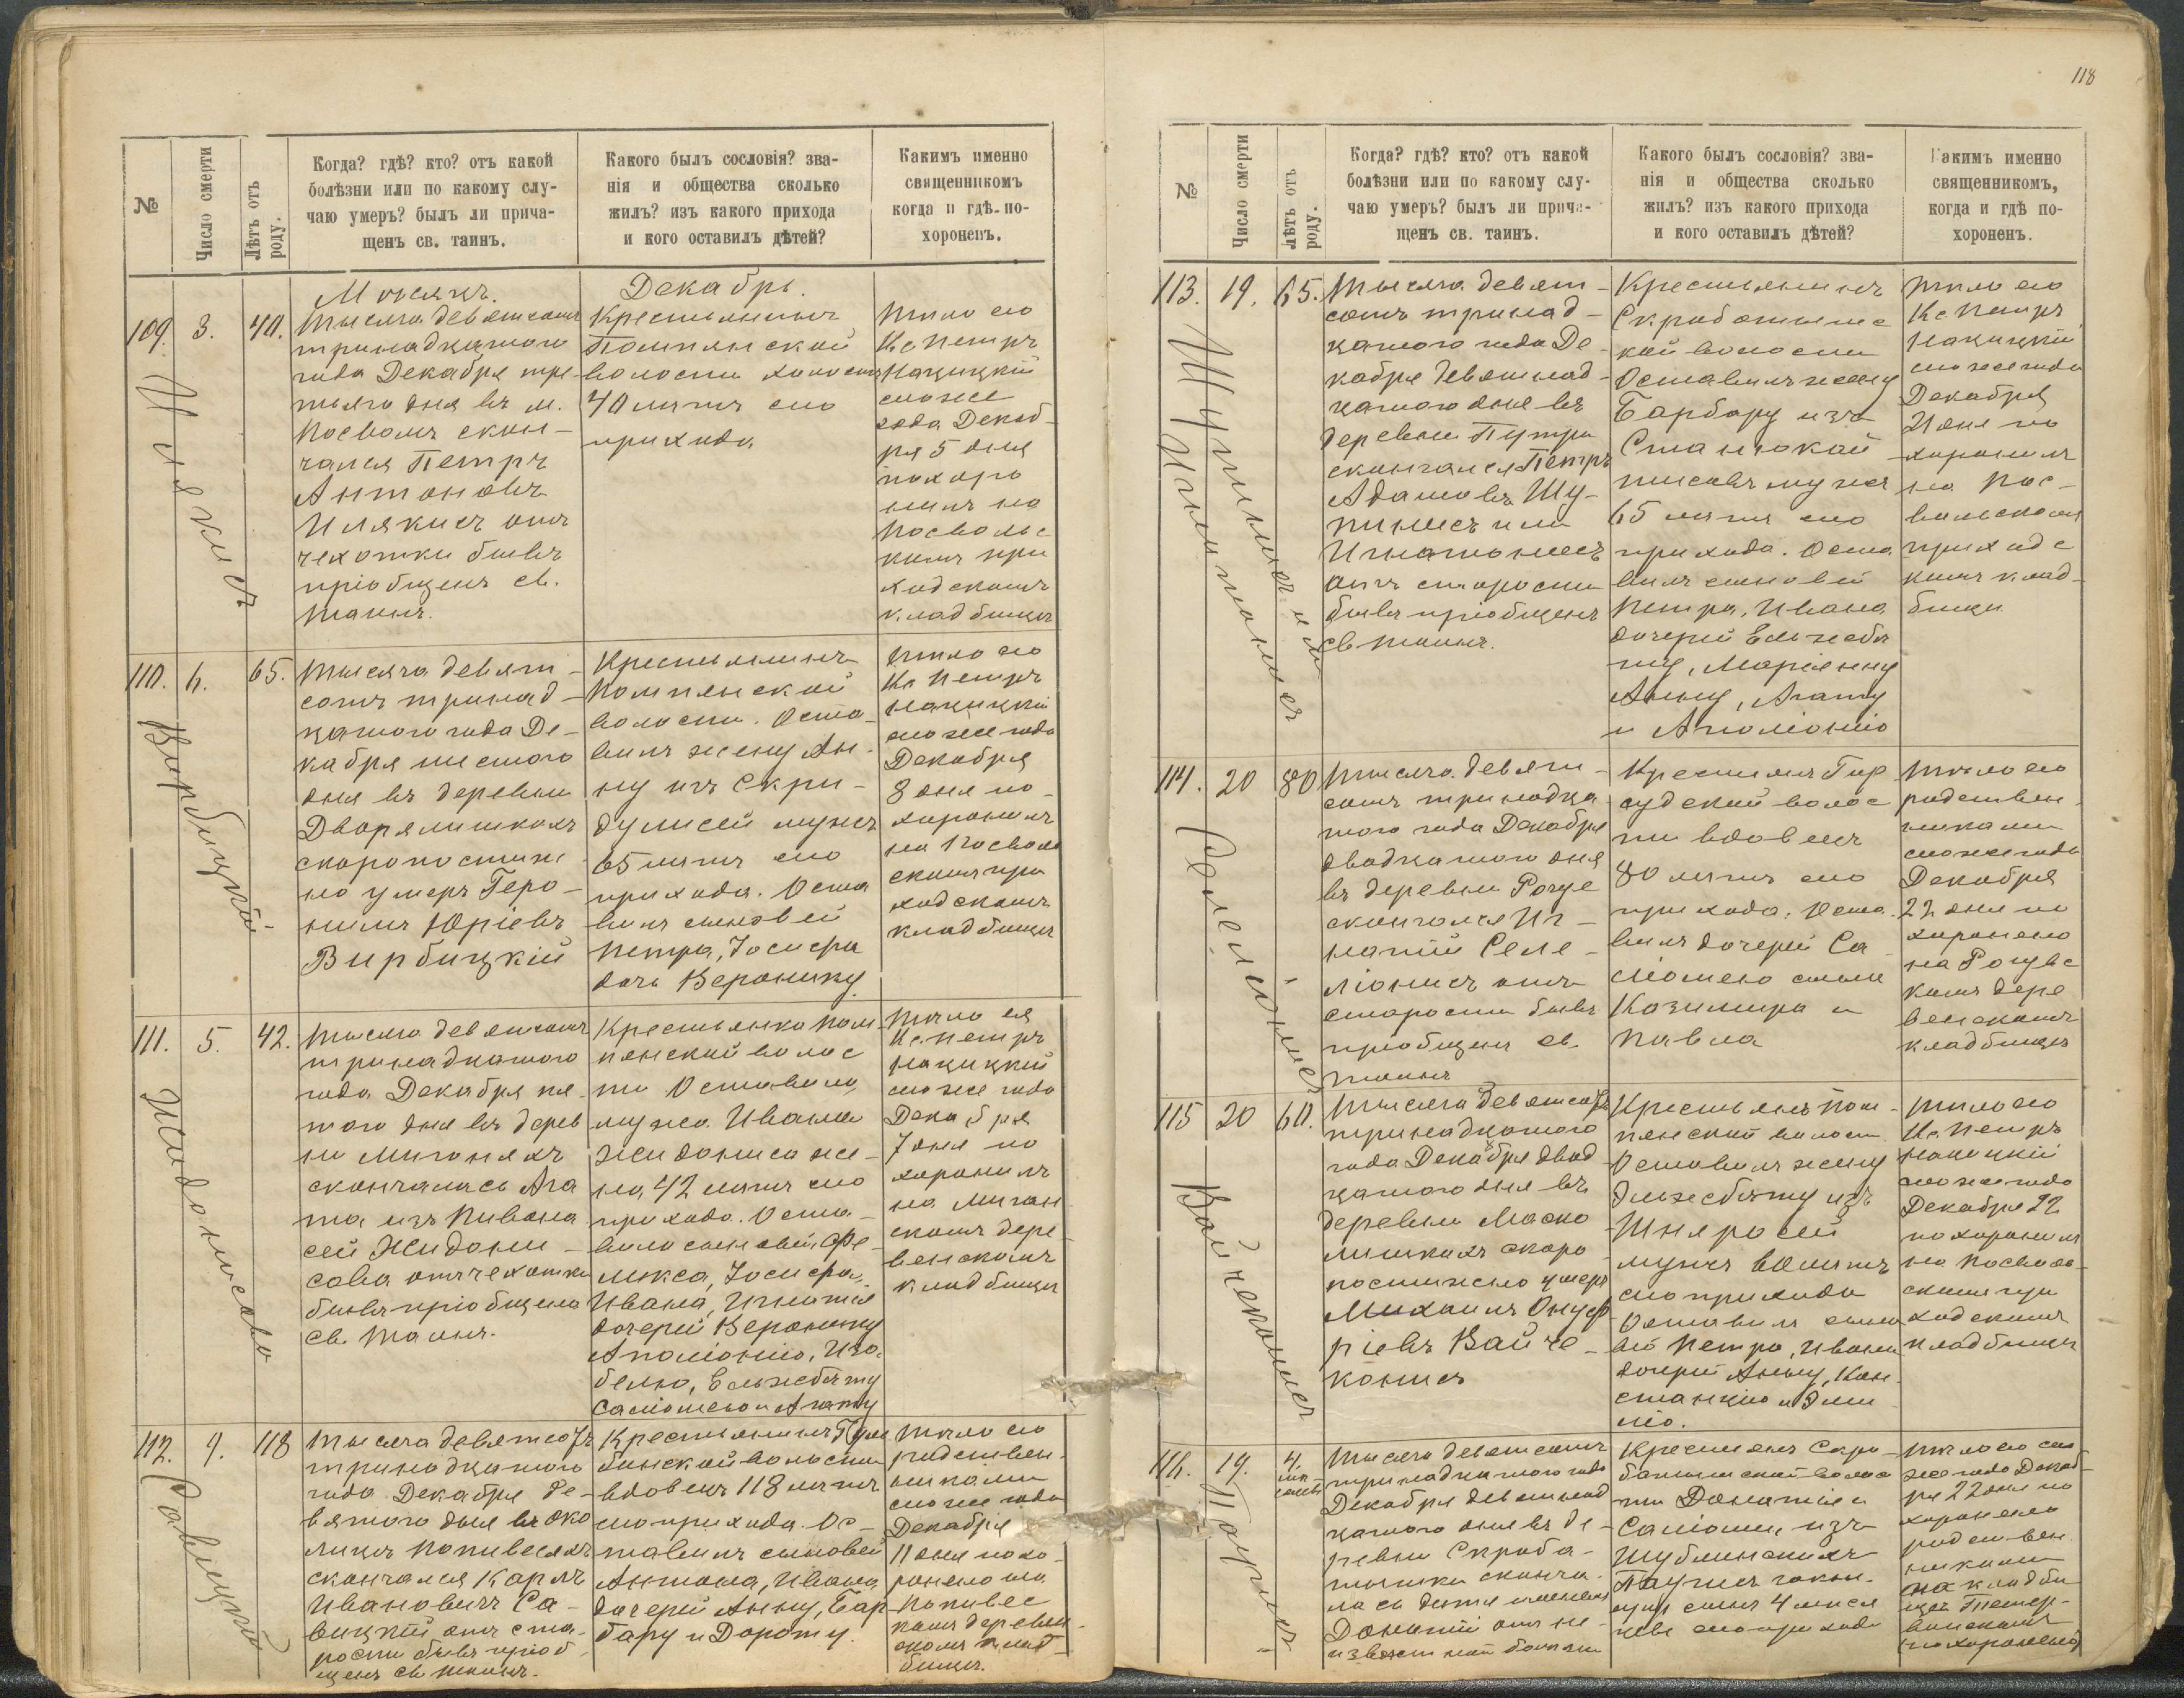 118
№
Число смерти
Лѣтъ отъ роду.
Когда? гдѣ? кто? отъ какой
болѣзни или по какому слу-
чаю умеръ? былъ ли прича-
щенъ св. таинъ.
Какого былъ сословія? зва-
нія и общества сколько
жилъ? изъ какого прихода
и кого оставилъ дѣтей?
Какимъ именно
священникомъ
когда и гдѣ по-
хороненъ.
Мѣсяцъ.
Декабрь.
109. 3. 40.
Илякисъ
Тысяча девятсотъ
тринадцатого
года Декабря тре-
тьяго дня въ м.
Посволь скон-
чался Петръ
Антоновъ
Илякисъ отъ
чехотки бывъ
пріобщенъ св.
таинъ.
Крестьянинъ
Помпянской
волости холостъ
40 лѣтъ сего
прихода
тѣло его
Кс Петръ
сегоже
года Декаб-
ря 5 дня
похоро
нилъ на
Посвольс
комъ при
ходскомъ
кладбищѣ
110. 6. 65.
Вирбицкій
Тысяча девят-
сотъ тринад-
цатого года Де-
кабря шестого
дня въ деревни
Дворялишкахъ
скоропостиж
но умеръ Геро-
нимъ Юріевъ
Вирбицкій
Крестьянинъ
Помпянской
волости. Оста-
вилъ жену Ан-
ну изъ Скри-
дулисей мужъ
65 лѣтъ сего
прихода. Оста
вилъ сыновей
Петра, Іосифа
дочь Веронику
тѣло его
Кс Петръ
сегоже года
Декабря
8 дня по-
хоронилъ
на Посволь
скомъ при
ходскомъ
кладбищѣ
111. 5. 42.
Жидонисова
Тысяча девятсотъ
тринадцатого
года Декабря пя-
того дня въ дерев
ни Миганяхъ
скончалась Ага
та изъ Пивона
сей Жидони-
сова отъ чехотки
бывъ пріобщена
св. таинъ.
Крестьянка Пом-
пянской волос
ти Оставила
мужа Ивана
Жидониса же-
на 42 лѣтъ сего
прихода. Оста-
вила сыновей Фе-
ликса, Іосифа,
Ивана, Игнатія
дочерей Веронику
Аполіонію, Иза-
белю, Ельжбяту
Саліомею и Агату
тѣло ея
Кс. Петръ
сегоже года
Декабря
7 дня по
хоронилъ
на Миган
скомъ дере-
венскомъ
кладбищѣ
112. 9. 118
Савицкій
Тысяча девятсотъ
тринадцатого
года Декабря де-
вятого дня въ око
лицѣ Попивесяхъ
скончался Карлъ
Ивановичъ Са-
вицкій отъ ста-
рости бывъ пріоб
щенъ св таинъ.
Крестьянинъ
волости
вдовецъ 118 лѣтъ
сего прихода. Ос-
тавилъ сыновей
Антона, Ивана
дочерей Анну, Бар-
бару и Дороту.
тѣло его
родствен-
никами
сегоже года
Декабря
11 дня похо-
ронено на
Попивес
комъ деревен-
скомъ клад-
бищѣ.
№
Число смерти
Лѣтъ отъ роду.
Когда? гдѣ? кто? отъ какой
болѣзни или по какому слу-
чаю умеръ? былъ ли прича-
щенъ св. таинъ.
Какого былъ сословія? зва-
нія и общества сколько
жилъ? изъ какого прихода
и кого оставилъ дѣтей?
Какимъ именно
священникомъ,
когда и гдѣ по-
хороненъ.
113. 19. 65.
Шупинисъ или
Игнатонисъ
Тысяча девят-
сотъ тринад-
цатого года Де-
кабря девятнад-
цатого дня въ
деревни Путри
скончался Петръ
Адамовъ Шу-
пинисъ или
Игнатонисъ
отъ старости
бывъ пріобщенъ
св таинъ.
Крестьянинъ
Скработишс
кой волости
Оставилъ жену
Барбару изъ
мужъ
65 лѣтъ сего
прихода. Оста
вилъ сыновей
Петра, Ивана
дочерей Ельжбя
ту, Маріянну
Анну, Агату
и Аполіонію
тѣло его
Кс Петръ
сегоже года
Декабря
дня по
хоронилъ
на Пос-
вольскомъ
приходс
комъ клад-
бищѣ
114. 20 80
Селеліонисъ
Тысяча девят-
сотъ тринадца
того года Декабря
двадцатого дня
въ деревни
скончался Иг-
натій Селе-
ліонисъ отъ
старости бывъ
пріобщенъ св.
таинъ
волос
ти вдовецъ
80 лѣтъ сего
прихода. Оста-
вилъ дочерей Са
ліомею сыновей
Казимира и
Павла
тѣло его
родствен-
никами
сегоже года
Декабря
22 дня по
хоронено
на
комъ дере
венскомъ
кладбищѣ
115 20 60.
Вайчеконисъ
Тысяча девятсотъ
тринадцатого
года Декабря двад
цатого дня въ
деревни Маско
лишкахъ скоро
постижно умеръ
Михаилъ Онуф
ріевъ Вайче-
конисъ
Крестьянъ Пом-
пянской волости
Оставилъ жену
Эльжбяту изъ
мужъ 60 лѣтъ
сего прихода
Оставилъ сыно
вей Петра, Ивана
дочерей Анну, Кон
станцію и Эми
лію.
тѣло его
Кс. Петръ
сегоже года
Декабря 22
похоронилъ
на Посволь-
скомъ при
ходскомъ
кладбищѣ
116. 19. 4.
Тысяча девятсотъ
тринадцатого года
Декабря девятнад
цатого дня въ де-
ревни Скроба-
тишки сконча-
лось дитя именемъ
Донатій отъ не-
извѣстной болѣзни
волос
ти Донатія и
Саліомеи изъ
закон-
ный сынъ 4 мѣся
цевъ сего прихода
тѣло его сего
же года Декаб-
ря 22 дня по
хоронено
родствен
никами
на кладби
щѣ
похоронено